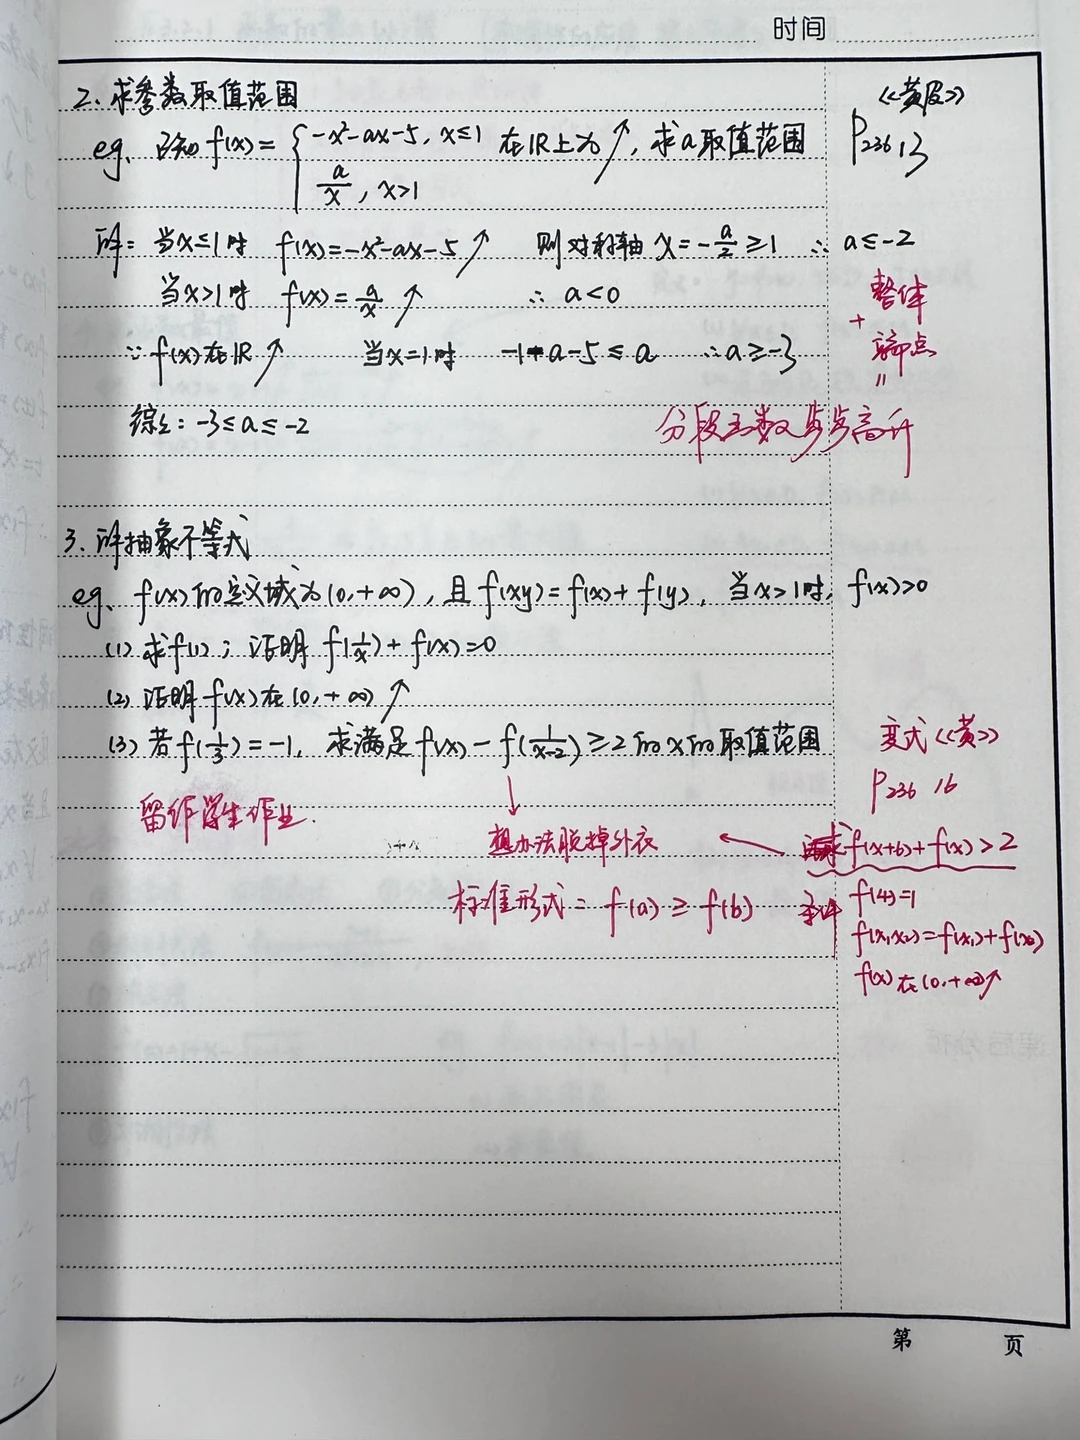 时间
2、求参数取值范围
《黄皮》
P236 13
eg、已知 f(x) = { -x²-ax-5, x≤1
a/x, x>1
在IR上为↗, 求a取值范围
解: 当x≤1时 f(x)=-x²-ax-5 ↗ 则对称轴 x=-a/2 ≥1 ∴ a≤-2
当x>1时 f(x)=a/x ↗ ∴ a<0
∵ f(x)在IR ↗ 当x=1时 -1-a-5≤a ∴a≥-3
综上: -3≤a≤-2
整体
+
端点
=
分段函数步步高升
3、解抽象不等式
eg、f(x)的定义域为(0,+∞), 且f(xy)=f(x)+f(y), 当x>1时, f(x)>0
(1) 求f(1); 证明 f(1/x)+f(x)=0
(2) 证明f(x)在(0,+∞) ↗
(3) 若f(1/3)=-1, 求满足 f(x)-f(1/(x-2))≥2的x的取值范围
留作学生作业.
↓
想办法脱掉外衣
标准形式: f(a)≥f(b)
变式《黄》
P236 16
← 求f(x+6)+f(x)>2
条件 f(4)=1
f(x₁x₂)=f(x₁)+f(x₂)
f(x)在(0,+∞)↗
第 页